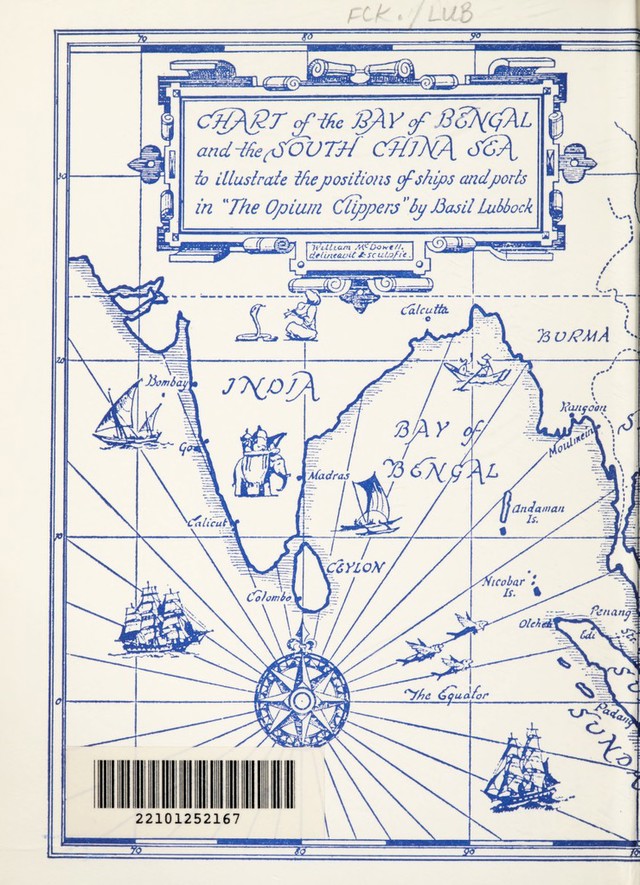 FCK. / LUB
70 80 90
CHART of the BAY of BENGAL
and the SOUTH CHINA SEA
to illustrate the positions of ships and ports
in "The Opium Clippers" by Basil Lubbock
William McDowell.
delineavit & sculpsit.
Calcutta
BURMA
20
Bombay
INDIA
Rangoon
BAY of
Moulmein
Goa
BENGAL
Madras
Andaman
Is.
Calicut
10
CEYLON
Nicobar
Is.
Colombo
Penang
Olcheh
Edi
The Equator
0
Padang
SUND
22101252167
70 80 90